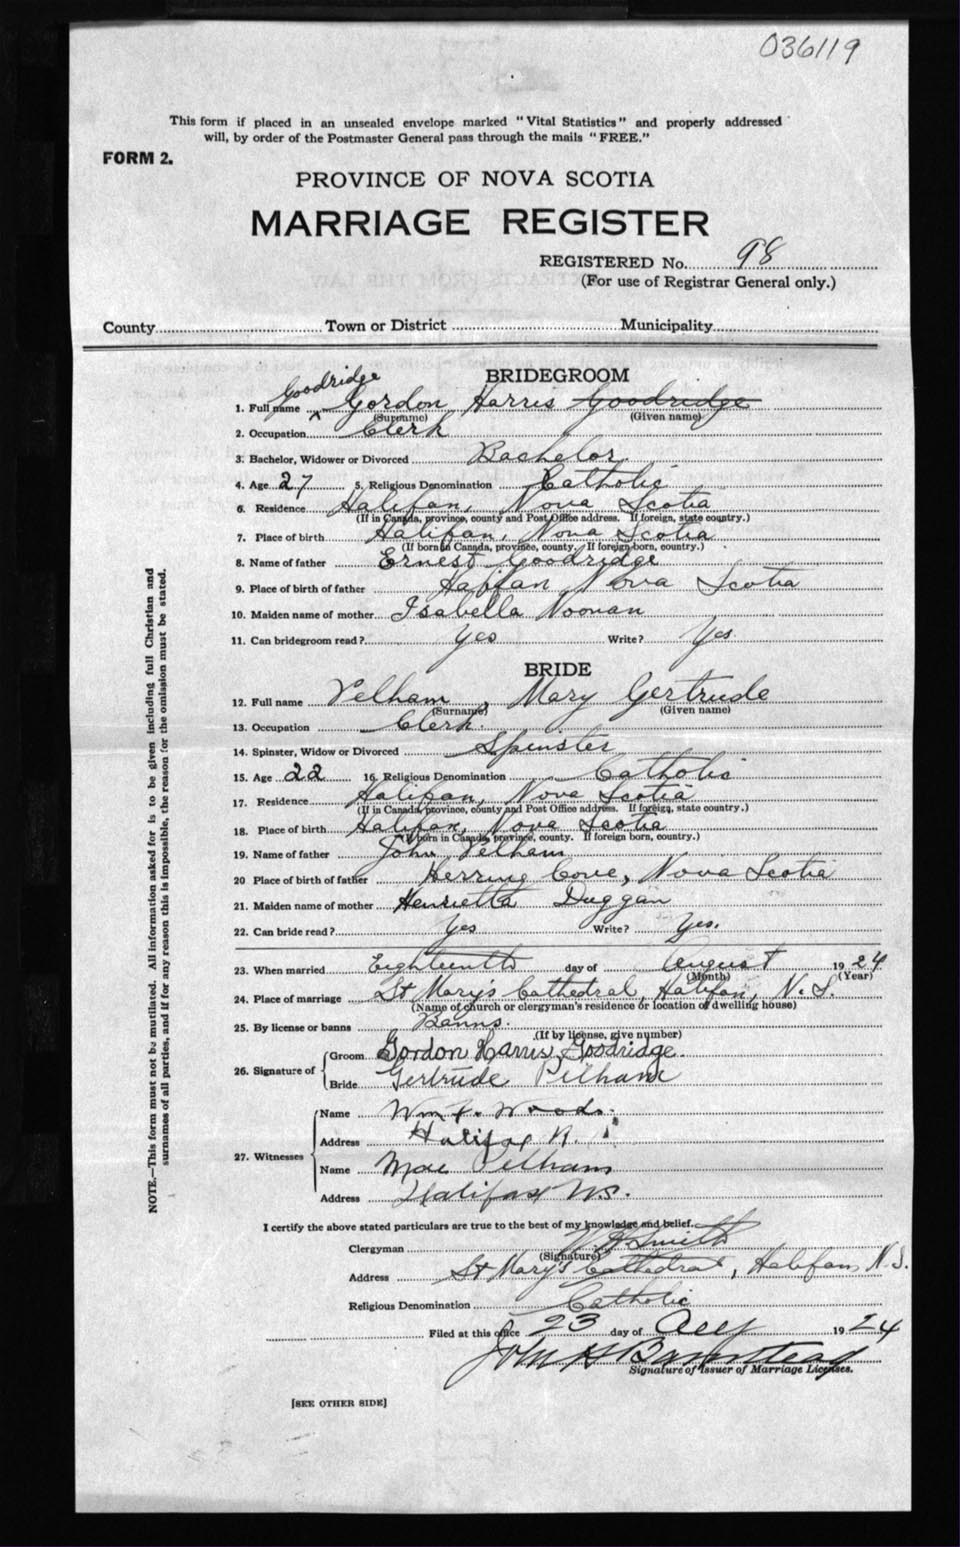 036119
This form if placed in an unsealed envelope marked "Vital Statistics" and properly addressed
will, by order of the Postmaster General pass through the mails "FREE."
FORM 2.
PROVINCE OF NOVA SCOTIA
MARRIAGE REGISTER
REGISTERED No. 98
(For use of Registrar General only.)
County Town or District Municipality
BRIDEGROOM
Goodridge
1. Full name Gordon Harris Goodridge
(Surname) (Given name)
2. Occupation Clerk
3. Bachelor, Widower or Divorced Bachelor
4. Age 27 5. Religious Denomination Catholic
6. Residence Halifax, Nova Scotia
(If in Canada, province, county and Post Office address. If foreign, state country.)
7. Place of birth Halifax, Nova Scotia
(If born in Canada, province, county. If foreign born, country.)
8. Name of father Ernest Goodridge
9. Place of birth of father Halifax Nova Scotia
10. Maiden name of mother Isabella Noonan
11. Can bridegroom read? Yes Write? Yes
BRIDE
12. Full name Pelham, Mary Gertrude
(Surname) (Given name)
13. Occupation Clerk.
14. Spinster, Widow or Divorced Spinster
15. Age 22 16. Religious Denomination Catholic
17. Residence Halifax, Nova Scotia
(If in Canada, province, county and Post Office address. If foreign, state country.)
18. Place of birth Halifax, Nova Scotia
(If born in Canada, province, county. If foreign born, country.)
19. Name of father John Pelham
20 Place of birth of father Herring Cove, Nova Scotia
21. Maiden name of mother Henrietta Duggan
22. Can bride read? Yes Write? Yes.
23. When married Eighteenth day of August 1924
(Month) (Year)
24. Place of marriage St Mary's Cathedral, Halifax, N.S.
(Name of church or clergyman's residence or location of dwelling house)
25. By license or banns Banns.
(If by license, give number)
26. Signature of Groom Gordon Harris Goodridge.
Bride Gertrude Pelham
27. Witnesses
Name Wm F. Woods.
Address Halifax N.
Name Mae Pelham
Address Halifax N.S.
I certify the above stated particulars are true to the best of my knowledge and belief.
Clergyman Smith
(Signature)
Address St Mary's Cathedral, Halifax N.S.
Religious Denomination Catholic
Filed at this office 23 day of Aug 1924
John H Barnstead
Signature of Issuer of Marriage Licenses.
[SEE OTHER SIDE]
NOTE.—This form must not be mutilated. All information asked for is to be given including full Christian and
surnames of all parties, and if for any reason this is impossible, the reason for the omission must be stated.